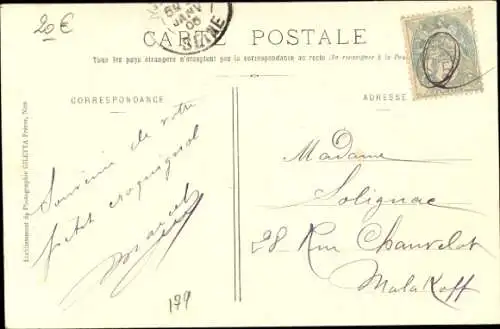 20 €
JANV
06
SEINE
CARTE POSTALE
Tous les pays étrangers n'acceptent pas la correspondance au recto (Se renseigner à la Poste
CORRESPONDANCE
ADRESSE
Souvenir de votre
petit croquignol
Marcel
Madame
Solignac
28 Rue Chauvelot
Malakoff
179
Etablissement de Photographie GILETTA Frères, Nice